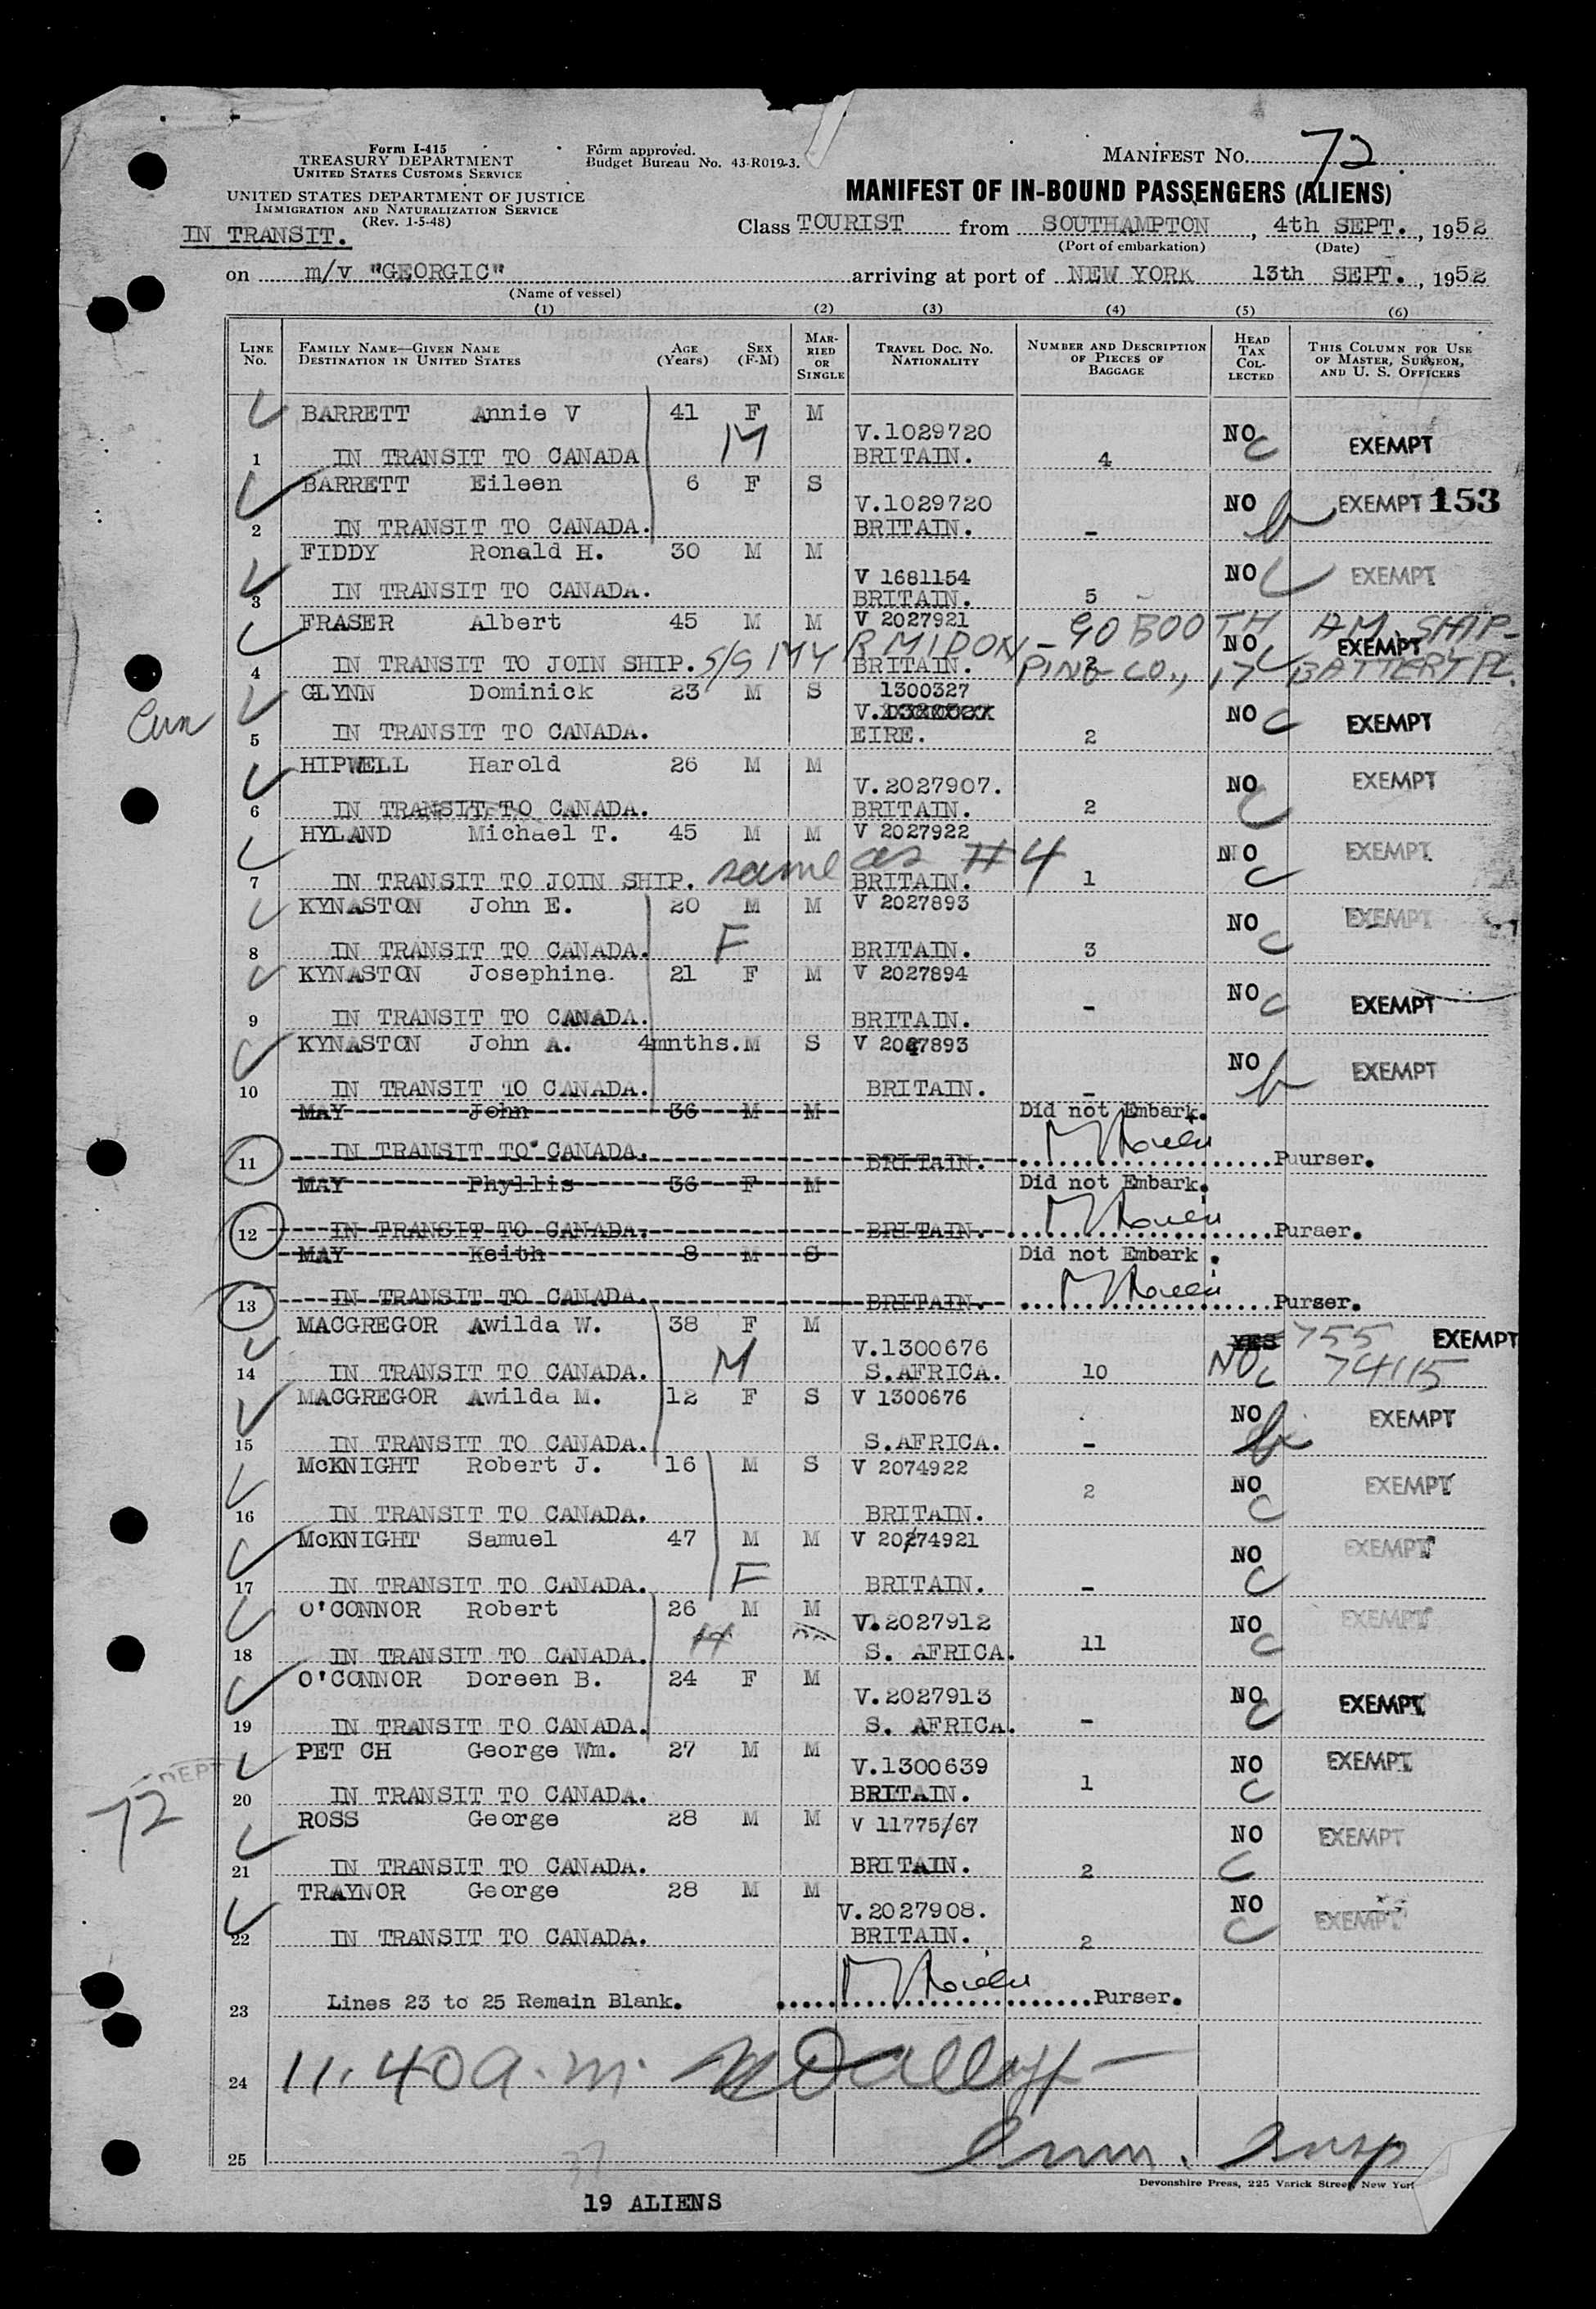 Form I-415
TREASURY DEPARTMENT
UNITED STATES CUSTOMS SERVICE
UNITED STATES DEPARTMENT OF JUSTICE
IMMIGRATION AND NATURALIZATION SERVICE
(Rev. 1-5-48)
IN TRANSIT.
Form approved.
Budget Bureau No. 43-R019-3.
MANIFEST NO. 72
MANIFEST OF IN-BOUND PASSENGERS (ALIENS)
Class TOURIST from SOUTHAMPTON, 4th SEPT., 1952
(Port of embarkation) (Date)
on m/v "GEORGIC" arriving at port of NEW YORK 13th SEPT., 1952
(Name of vessel)
(1) (2) (3) (4) (5) (6)
LINE NO. FAMILY NAME—GIVEN NAME DESTINATION IN UNITED STATES AGE (Years) SEX (F-M) MARRIED OR SINGLE TRAVEL DOC. NO. NATIONALITY NUMBER AND DESCRIPTION OF PIECES OF BAGGAGE HEAD TAX COLLECTED THIS COLUMN FOR USE OF MASTER, SURGEON, AND U. S. OFFICERS
BARRETT Annie V 41 F M V.1029720 NO EXEMPT
1 IN TRANSIT TO CANADA M BRITAIN. 4 C
BARRETT Eileen 6 F S V.1029720 NO EXEMPT 153
2 IN TRANSIT TO CANADA. BRITAIN. -
FIDDY Ronald H. 30 M M V 1681154 NO C EXEMPT
3 IN TRANSIT TO CANADA. BRITAIN. 5
FRASER Albert 45 M M V 2027921 - GO BOOTH AM. SHIP-
4 IN TRANSIT TO JOIN SHIP. S/S MYRMIDON BRITAIN. 2 NO C EXEMPT PING CO., 17 BATTERY PL.
GLYNN Dominick 23 M S 1300327 NO C EXEMPT
5 IN TRANSIT TO CANADA. V. EIRE. 2
HIPWELL Harold 26 M M V.2027907. NO EXEMPT
6 IN TRANSIT TO CANADA. BRITAIN. 2 C
HYLAND Michael T. 45 M M V 2027922 NO EXEMPT
7 IN TRANSIT TO JOIN SHIP. same as #4 BRITAIN. 1 C
KYNASTON John E. 20 M M V 2027893 NO EXEMPT
8 IN TRANSIT TO CANADA. F BRITAIN. 3 C
KYNASTON Josephine. 21 F M V 2027894 NO C EXEMPT
9 IN TRANSIT TO CANADA. BRITAIN. -
KYNASTON John A. 4mnths. M S V 2027893 NO EXEMPT
10 IN TRANSIT TO CANADA. BRITAIN. -
MAY John 36 M M Did not Embark.
11 IN TRANSIT TO CANADA. BRITAIN. Puurser.
MAY Phyllis 36 F M Did not Embark.
12 IN TRANSIT TO CANADA. BRITAIN. Puraer.
MAY Keith 8 M S Did not Embark.
13 IN TRANSIT TO CANADA. BRITAIN. Purser.
MACGREGOR Awilda W. 38 F M V.1300676 YES 755 EXEMPT
14 IN TRANSIT TO CANADA. M S.AFRICA. 10 NO C 74115
MACGREGOR Awilda M. 12 F S V 1300676 NO EXEMPT
15 IN TRANSIT TO CANADA. S.AFRICA. -
McKNIGHT Robert J. 16 M S V 2074922 2 NO EXEMPT
16 IN TRANSIT TO CANADA. BRITAIN. C
McKNIGHT Samuel 47 M M V 2074921 NO EXEMPT
17 IN TRANSIT TO CANADA. F BRITAIN. - C
O'CONNOR Robert 26 M M V.2027912 NO EXEMPT
18 IN TRANSIT TO CANADA. H S. AFRICA. 11 C
O'CONNOR Doreen B. 24 F M V.2027913 NO EXEMPT
19 IN TRANSIT TO CANADA. S. AFRICA. - C
PET CH George Wm. 27 M M V.1300639 NO EXEMPT
20 IN TRANSIT TO CANADA. BRITAIN. 1 C
72
ROSS George 28 M M V 11775/67 NO EXEMPT
21 IN TRANSIT TO CANADA. BRITAIN. 2 C
TRAYNOR George 28 M M V.2027908. NO EXEMPT
22 IN TRANSIT TO CANADA. BRITAIN. 2 C
23 Lines 23 to 25 Remain Blank. Purser.
24 11.40 a.m.
25 Imm. Insp
Devonshire Press, 225 Varick Street, New York
19 ALIENS